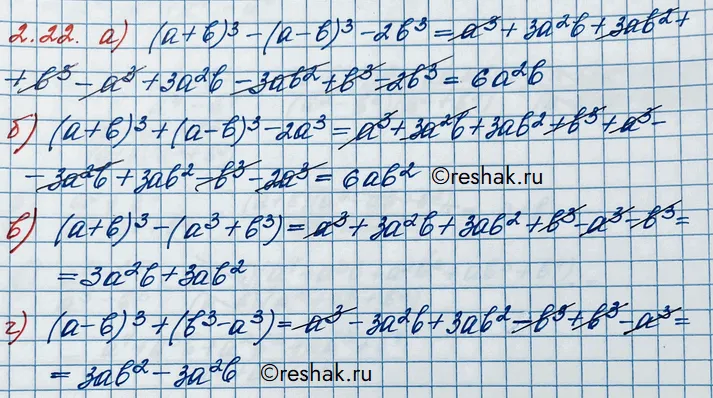 2.22. а) (a+b)³-(a-b)³-2b³=a³+3a²b+3ab²+
+b³-a³+3a²b-3ab²+b³-2b³=6a²b
б) (a+b)³+(a-b)³-2a³=a³+3a²b+3ab²+b³+a³-
-3a²b+3ab²-b³-2a³=6ab²
©reshak.ru
в) (a+b)³-(a³+b³)=a³+3a²b+3ab²+b³-a³-b³=
=3a²b+3ab²
г) (a-b)³+(b³-a³)=a³-3a²b+3ab²-b³+b³-a³=
=3ab²-3a²b
©reshak.ru